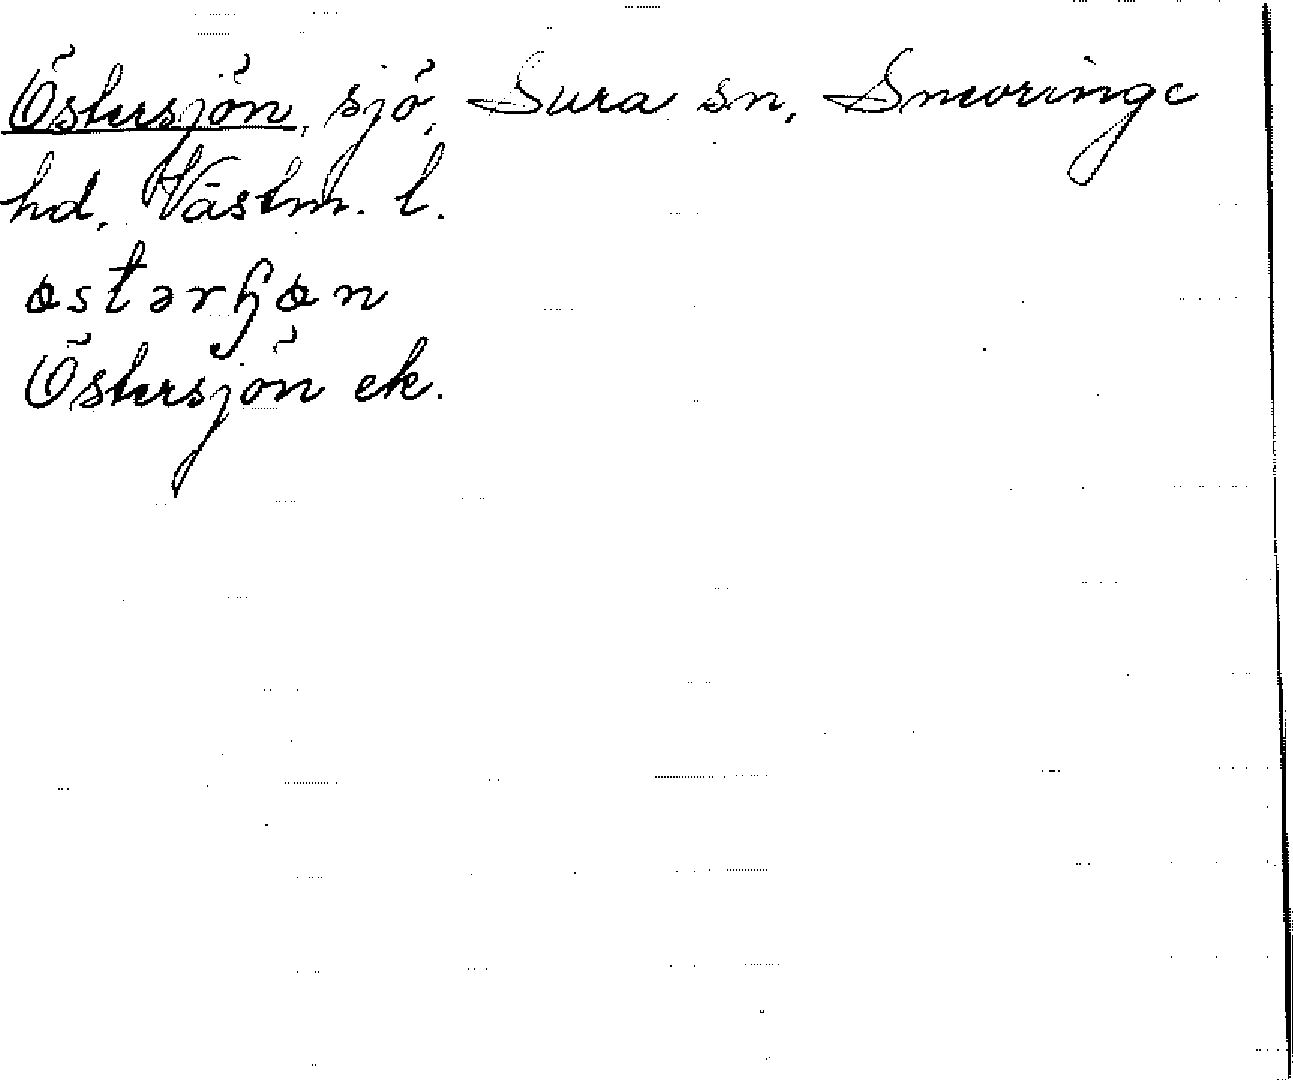 Östersjön, sjö, Sura sn, Snevringe
hd, Västm. l.
østərɧøn
Östersjön ek.